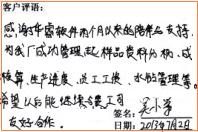 客户评语:
感谢华霖软件两个月以来的陪伴与支持,
为我厂成功管理起样品资料分析、成
核算、生产进度、送工工模、水贴管理等。
希望以后能继续合贵工司
友好合作。
签名:吴小华
日期:2013年7月2日